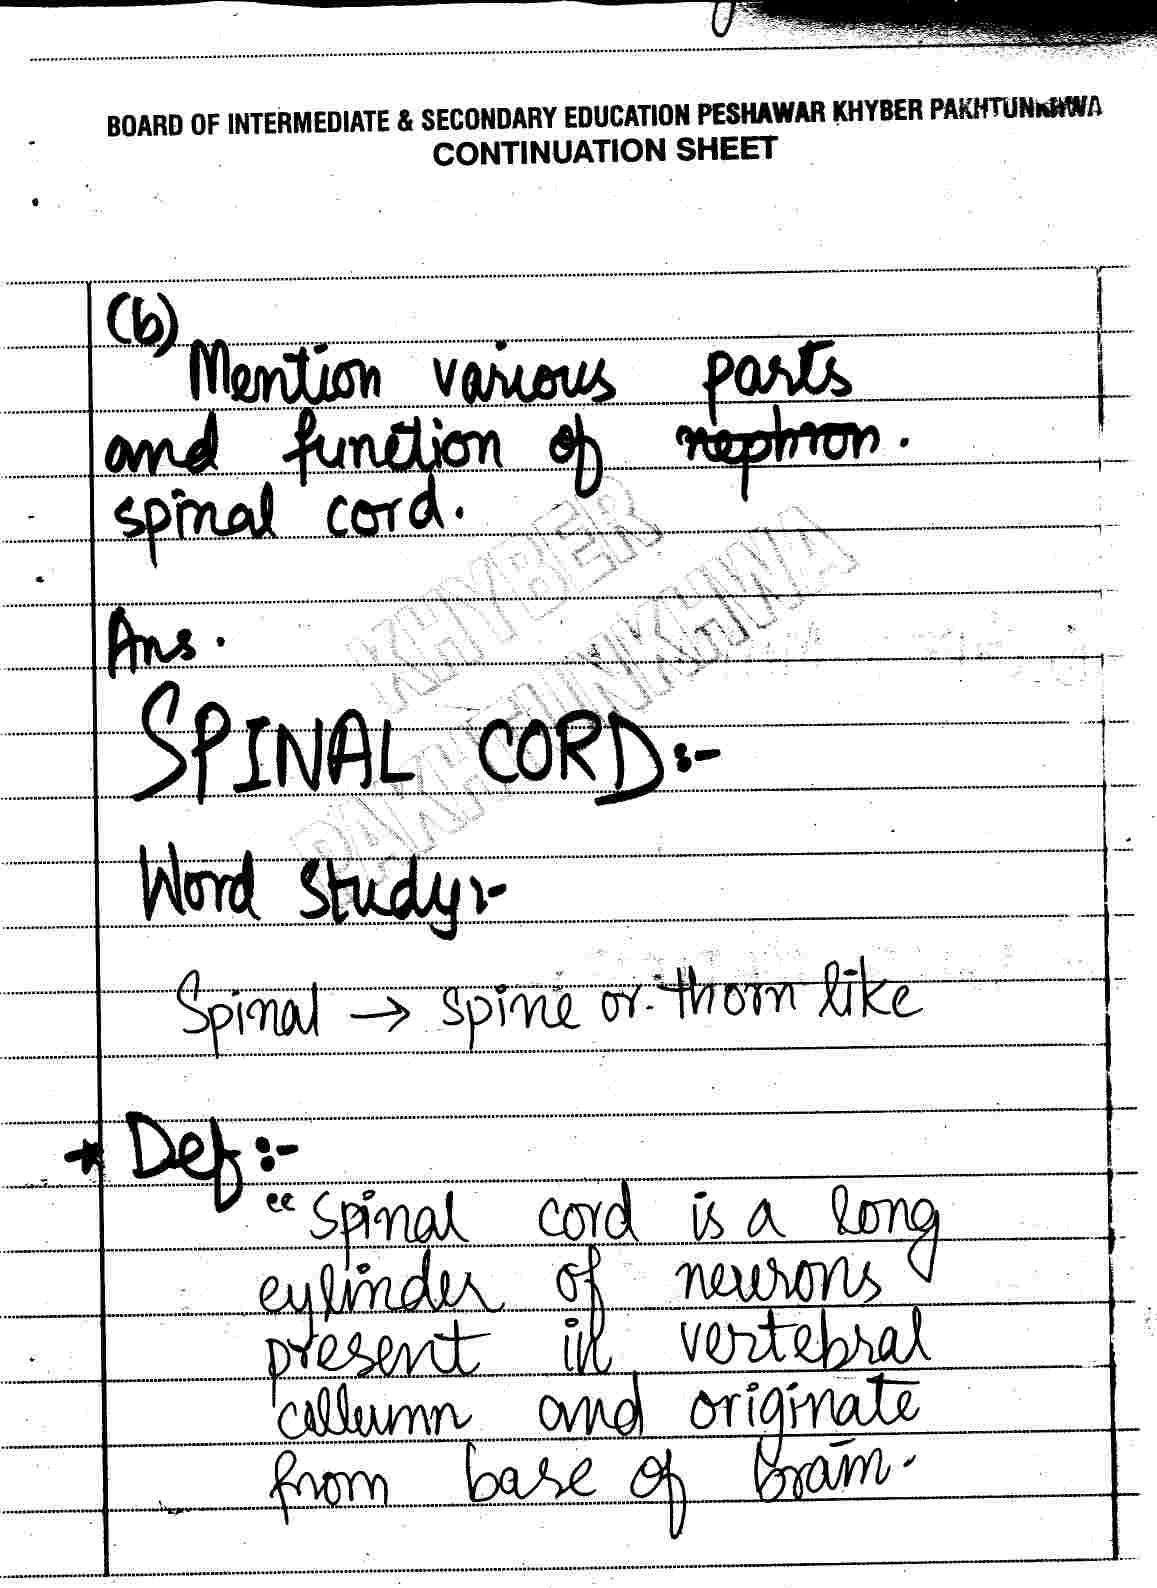 BOARD OF INTERMEDIATE & SECONDARY EDUCATION PESHAWAR KHYBER PAKHTUNKHWA
CONTINUATION SHEET
(b)
Mention various parts
and function of nephron.
spinal cord.
KHYBER
PAKHTUNKHWA
Ans.
SPINAL CORD:-
Word Study:-
Spinal → spine or thorn like
* Def:-
"Spinal cord is a long
cylinder of neurons
present in vertebral
collumn and originate
from base of brain.